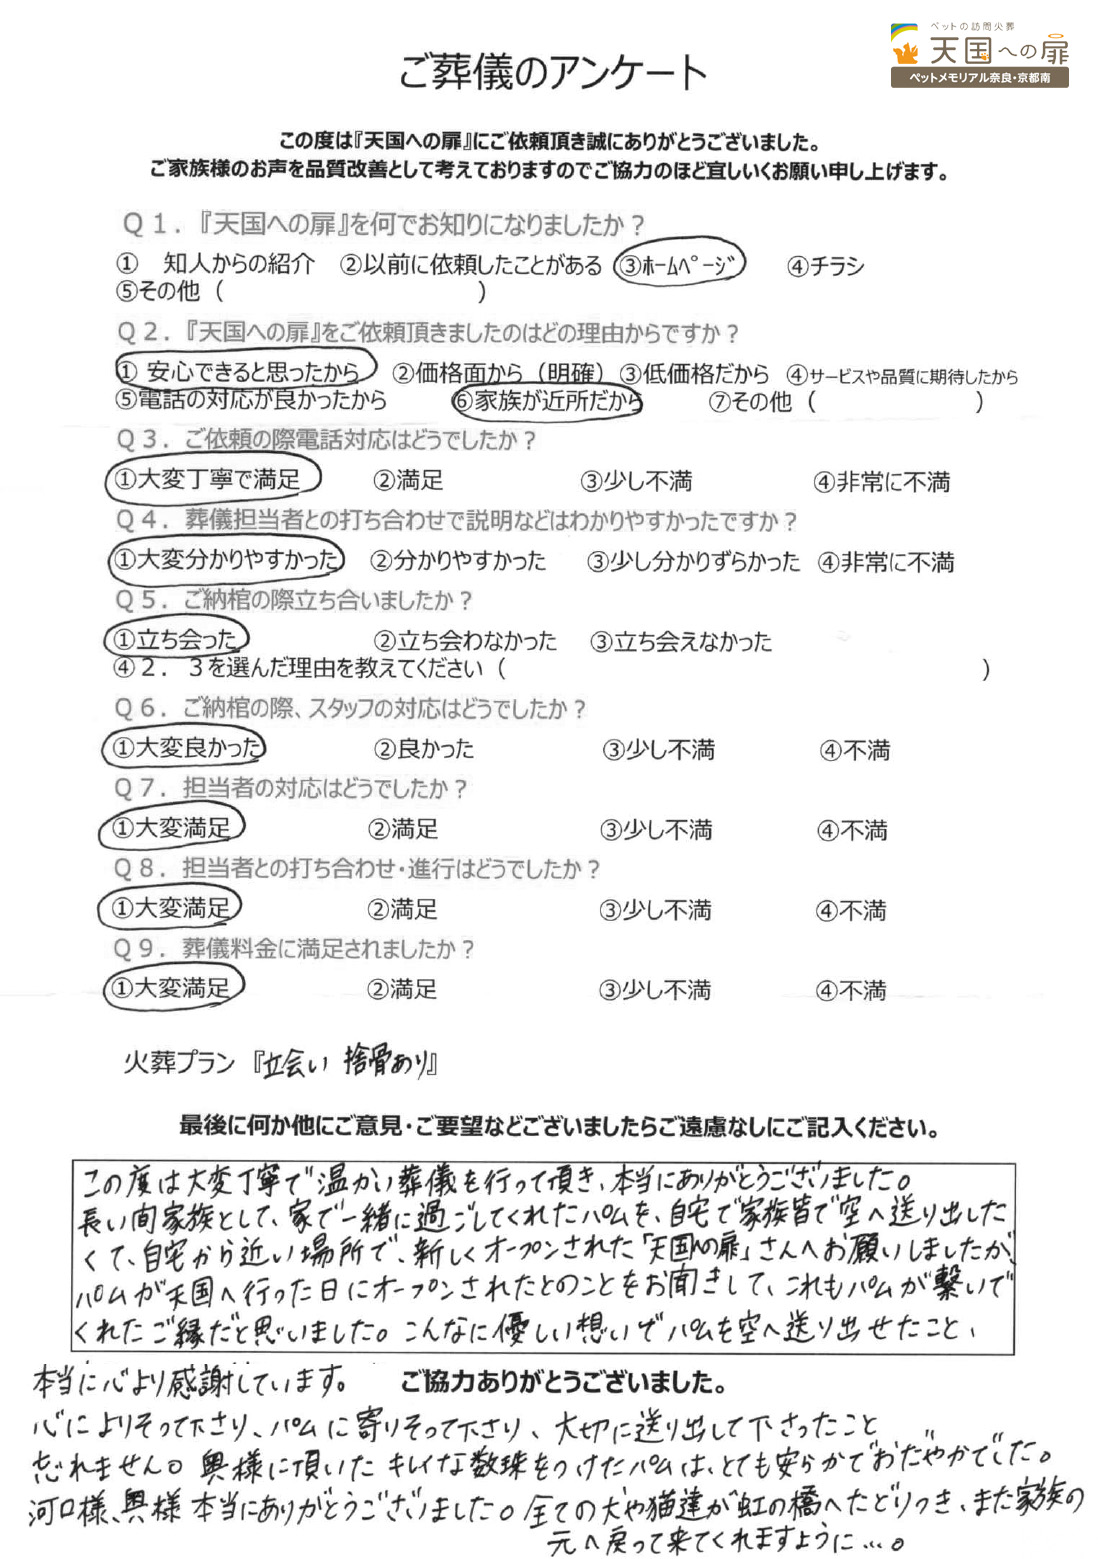 ペットの訪問火葬
天国への扉
ペットメモリアル奈良・京都南
ご葬儀のアンケート
この度は『天国への扉』にご依頼頂き誠にありがとうございました。
ご家族様のお声を品質改善として考えておりますのでご協力のほど宜しいくお願い申し上げます。
Q1．『天国への扉』を何でお知りになりましたか？
① 知人からの紹介 ②以前に依頼したことがある ③ﾎｰﾑﾍﾟｰｼﾞ ④チラシ
⑤その他（ ）
Q2．『天国への扉』をご依頼頂きましたのはどの理由からですか？
① 安心できると思ったから ②価格面から（明確） ③低価格だから ④サービスや品質に期待したから
⑤電話の対応が良かったから ⑥家族が近所だから ⑦その他（ ）
Q3．ご依頼の際電話対応はどうでしたか？
①大変丁寧で満足 ②満足 ③少し不満 ④非常に不満
Q4．葬儀担当者との打ち合わせで説明などはわかりやすかったですか？
①大変分かりやすかった ②分かりやすかった ③少し分かりずらかった ④非常に不満
Q5．ご納棺の際立ち合いましたか？
①立ち会った ②立ち会わなかった ③立ち会えなかった
④２．３を選んだ理由を教えてください（ ）
Q6．ご納棺の際、スタッフの対応はどうでしたか？
①大変良かった ②良かった ③少し不満 ④不満
Q7．担当者の対応はどうでしたか？
①大変満足 ②満足 ③少し不満 ④不満
Q8．担当者との打ち合わせ・進行はどうでしたか？
①大変満足 ②満足 ③少し不満 ④不満
Q9．葬儀料金に満足されましたか？
①大変満足 ②満足 ③少し不満 ④不満
火葬プラン『立会い 捨骨あり』
最後に何か他にご意見・ご要望などございましたらご遠慮なしにご記入ください。
この度は大変丁寧で温かい葬儀を行って頂き、本当にありがとうございました。
長い間家族として、家で一緒に過ごしてくれたパムを、自宅で家族皆で空へ送り出した
くて、自宅から近い場所で、新しくオープンされた「天国への扉」さんへお願いしましたが、
パムが天国へ行った日にオープンされたとのことをお聞きして、これもパムが繋いで
くれたご縁だと思いました。こんなに優しい想いでパムを空へ送り出せたこと、
本当に心より感謝しています。
ご協力ありがとうございました。
心によりそって下さり、パムに寄りそって下さり、大切に送り出して下さったこと
忘れません。奥様に頂いたキレイな数珠をつけたパムは、とても安らかでおだやかでした。
河口様、奥様 本当にありがとうございました。全ての犬や猫達が虹の橋へたどりつき、また家族の
元へ戻って来てくれますように…。